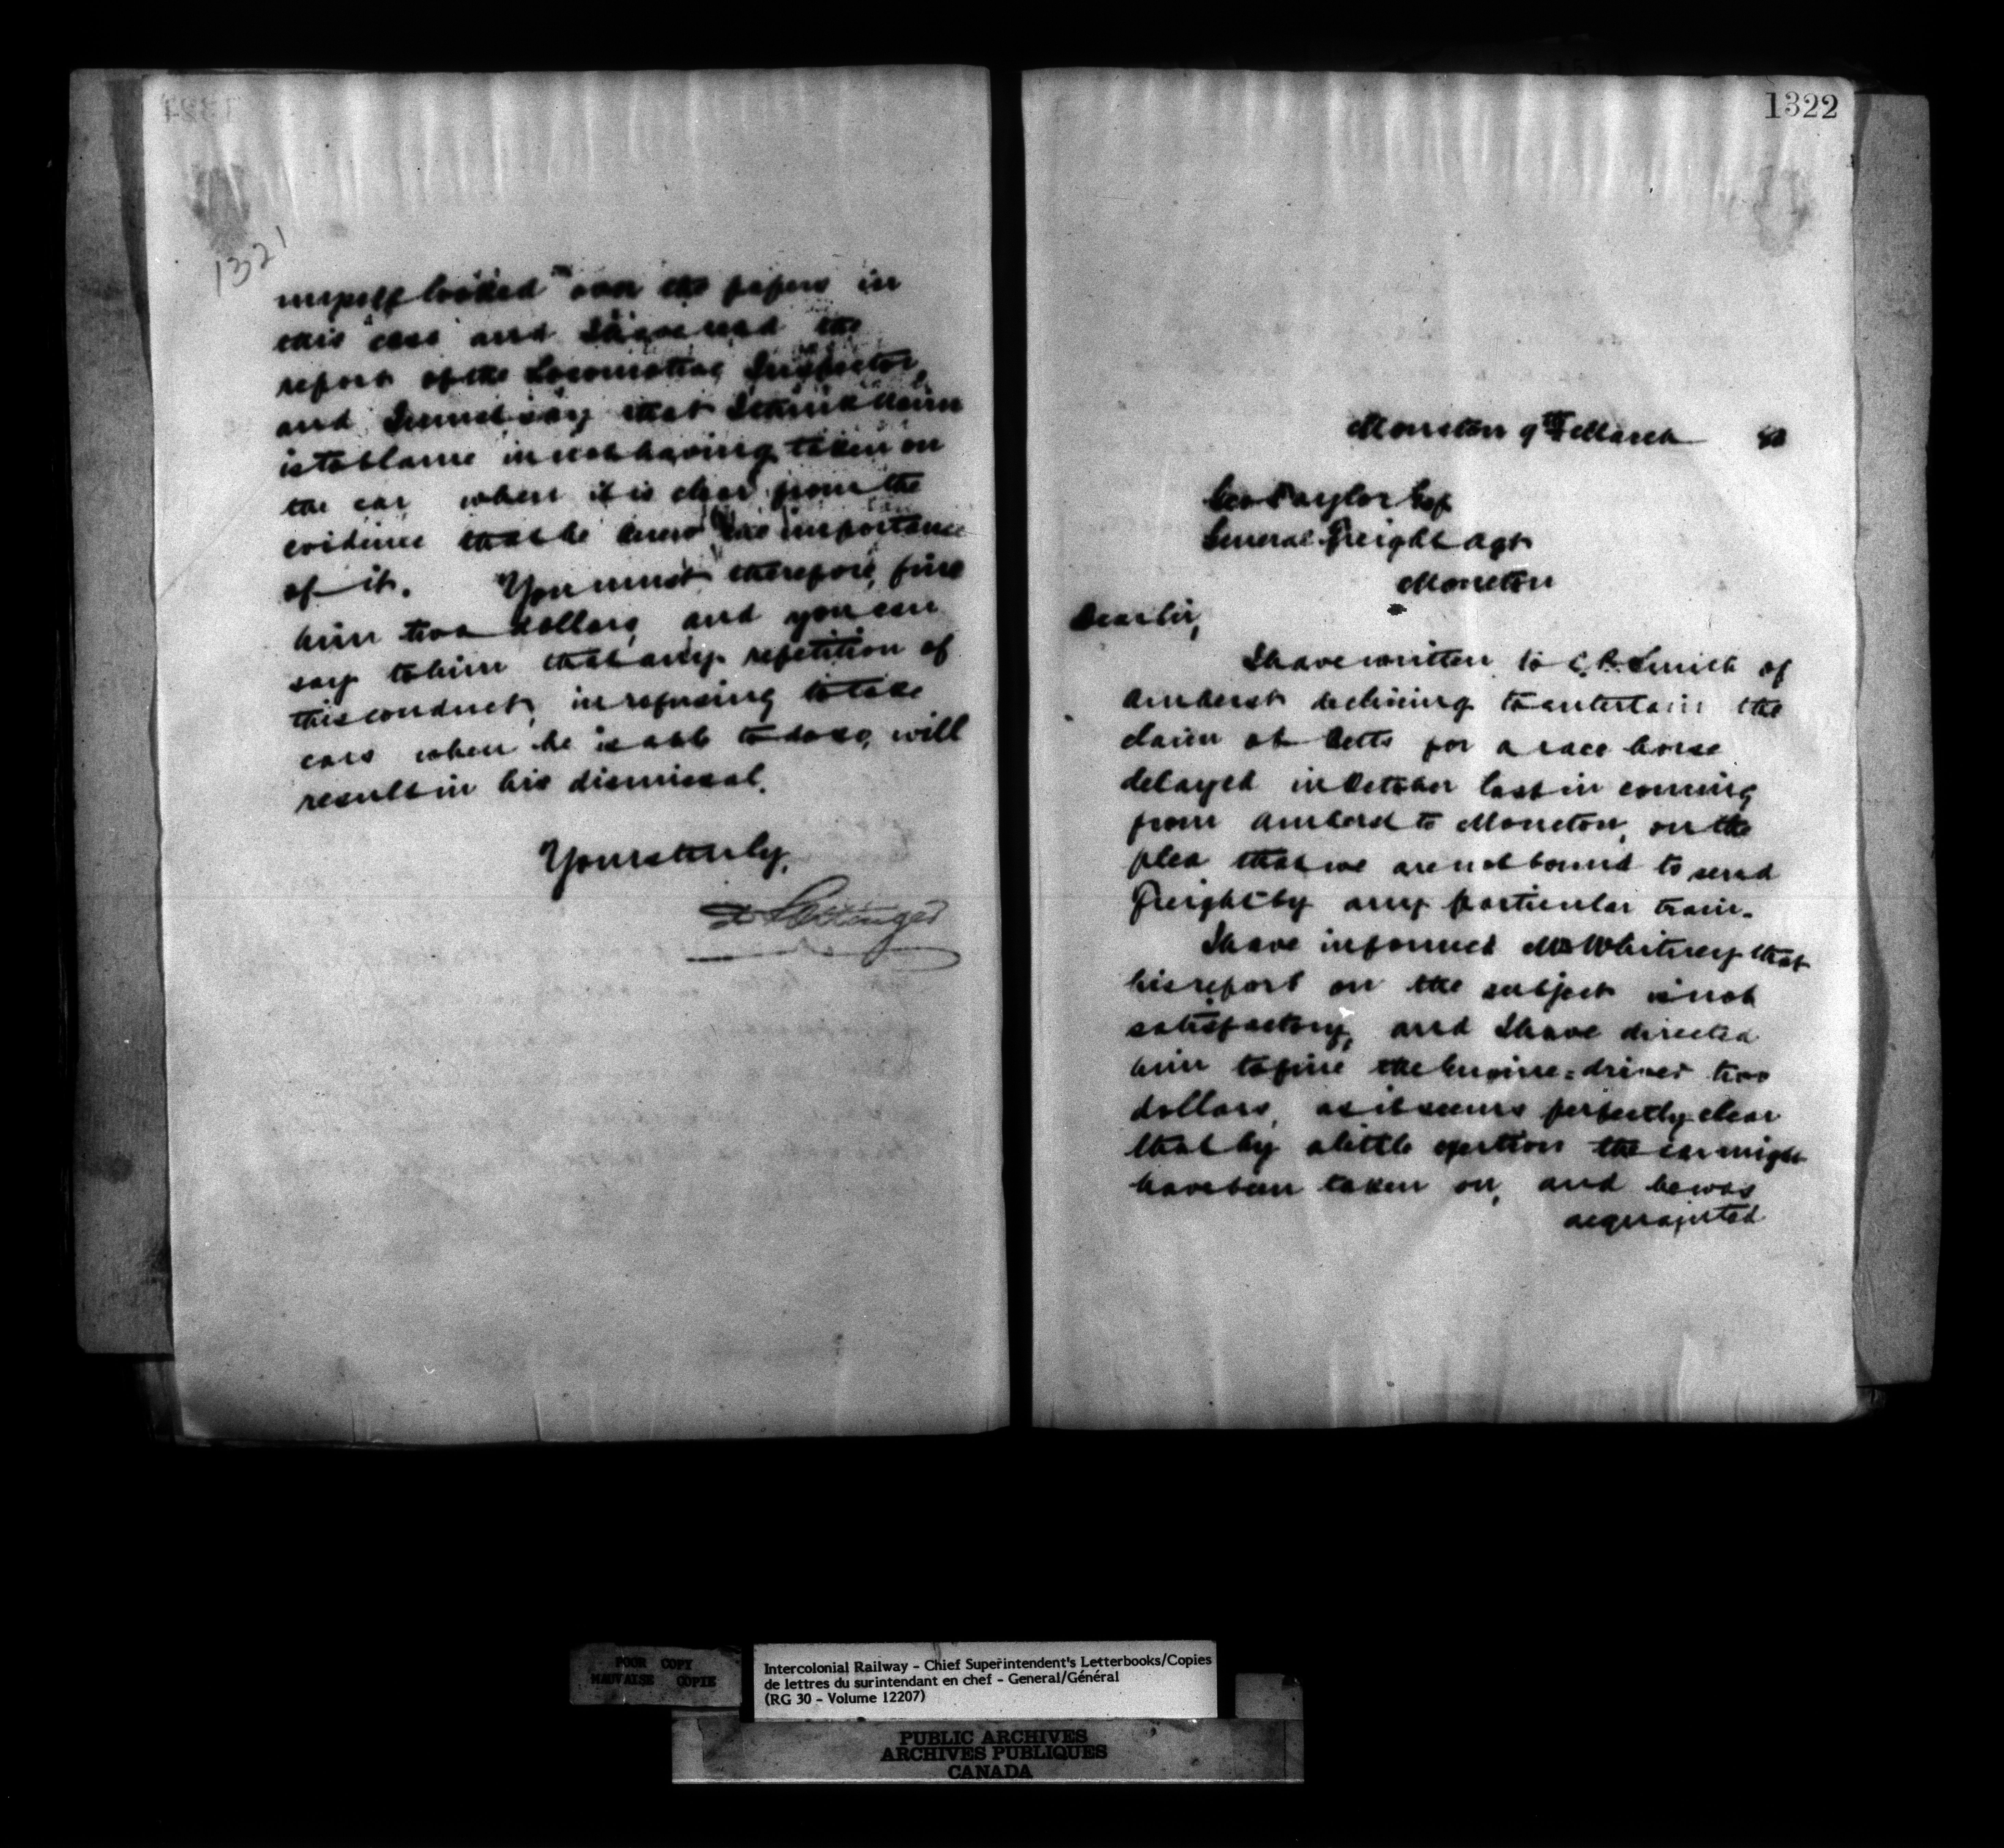 1321
myself looked over the papers in
this case and I have read the
report of the Locomotive Inspector,
and I must say that I think
is to blame in not having taken on
the car when it is clear from the
evidence that he knew the importance
of it. You must therefore, fine
him two dollars, and you can
say to him that any repetition of
this conduct, in refusing to take
cars when he is able to do so, will
result in his dismissal.
Yours truly,
D Pottinger
1322
Moncton 9th March 80
Geo Taylor Esq
General Freight Agt
Moncton
Dear Sir,
I have written to C. R. Smith of
Amherst declining to entertain the
claim of Betts for a race horse
delayed in October last in coming
from Amherst to Moncton, on the
plea that we are not bound to send
freight by any particular train.
I have informed Mr Whitney that
his report on the subject is not
satisfactory, and I have directed
him to fine the Engine=driver two
dollars, as it seems perfectly clear
that by a little exertion the car might
have been taken on, and he was
acquainted
POOR COPY
MAUVAISE COPIE
Intercolonial Railway - Chief Superintendent's Letterbooks/Copies
de lettres du surintendant en chef - General/Général
(RG 30 - Volume 12207)
PUBLIC ARCHIVES
ARCHIVES PUBLIQUES
CANADA